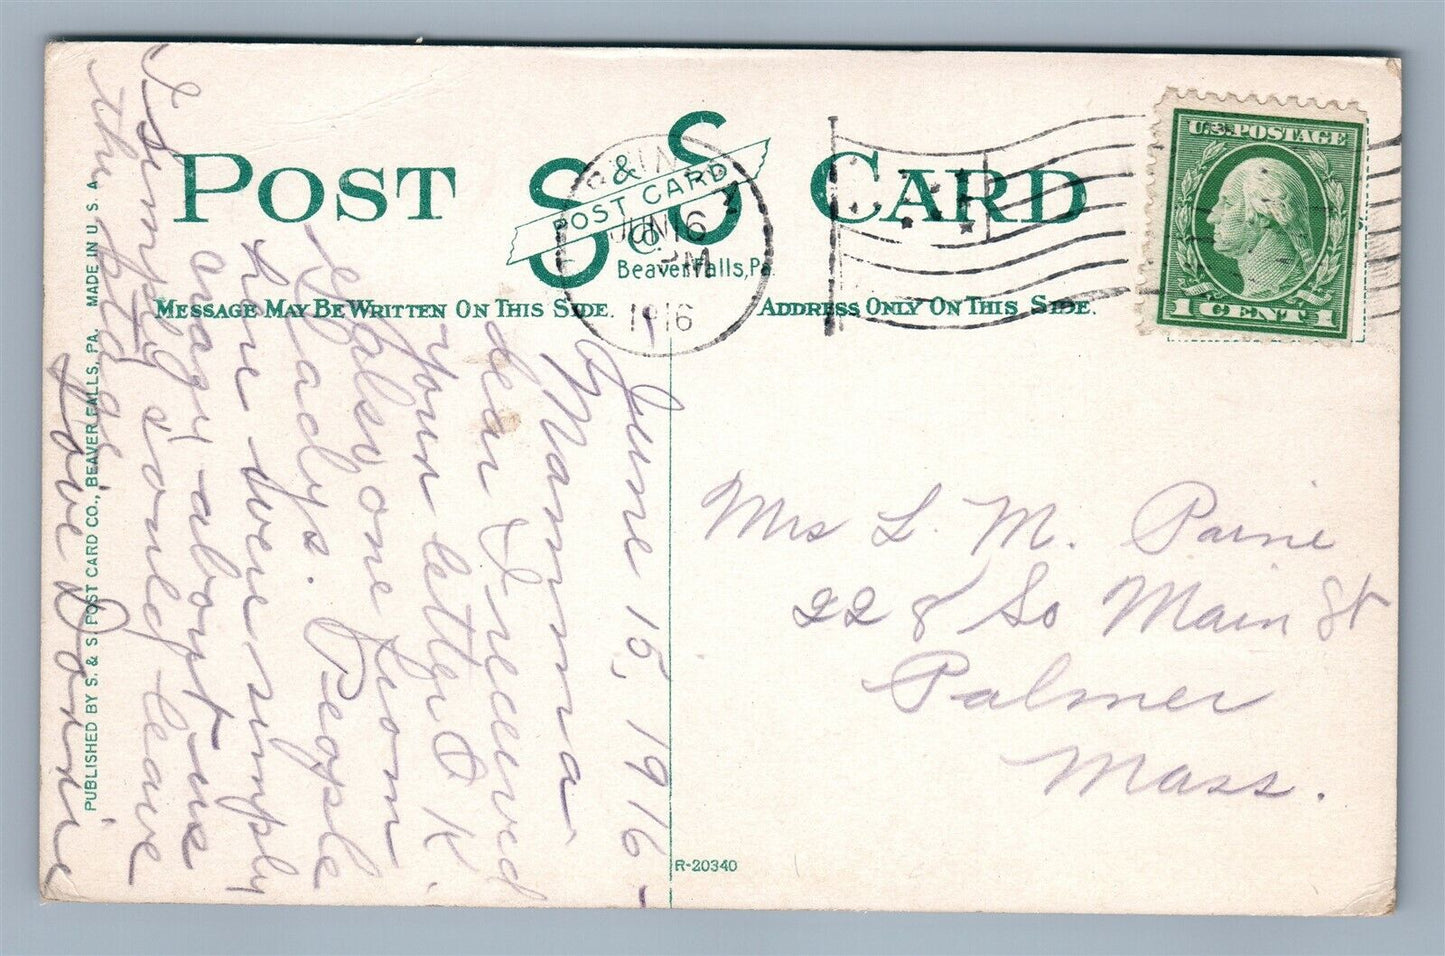 POST CARD
S & S
POST CARD
CO
Beaver Falls, Pa.
MESSAGE MAY BE WRITTEN ON THIS SIDE.
ADDRESS ONLY ON THIS SIDE.
JUN 16
PM
1916
U.S. POSTAGE
1 CENT 1
June 15, 1916-
My Mamma
dear I received
your letter O K.
& also one from
Gladys. People
here were simply
crazy about us
I simply could leave
the old
Love Dorrie
Mrs L. M. Paine
228 So Main St
Palmer
Mass.
PUBLISHED BY S. & S. POST CARD CO., BEAVER FALLS, PA. MADE IN U. S. A.
R-20340